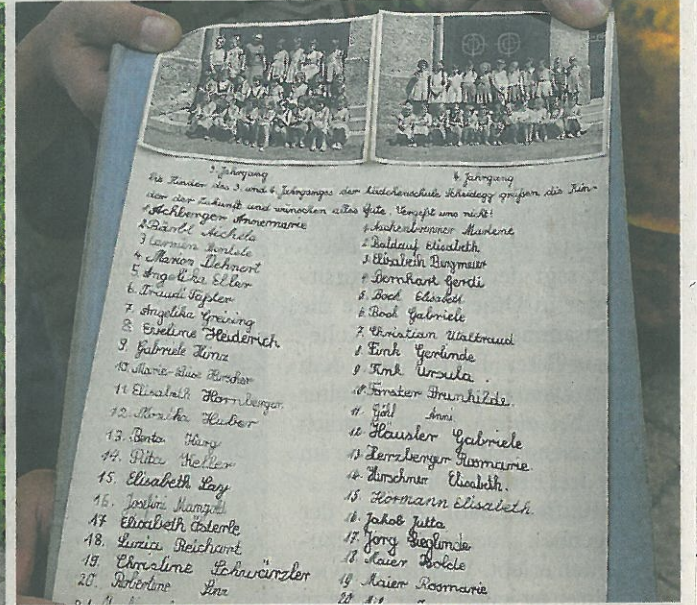 3. Jahrgang
4. Jahrgang
Die Kinder des 3. und 4. Jahrganges der Mädchenschule Scheidegg grüßen die Kin-
der der Zukunft und wünschen alles Gute. Vergeßt uns nicht!
1. Achberger Annemarie
2. Bärbl Aichele
3. Carmen
4. Marion Dehnert
5. Angelika Eller
6. Traudl
7. Angelika Greising
8. Eveline Heiderich
9. Gabriele Hinz
10. Marie-Luise Hirscher
11. Elisabeth Hornberger
12. Monika Huber
13. Berta
14. Rita Keller
15. Elisabeth Lay
16. Josefine Mangold
17 Elisabeth Österle
18. Luzia Reichart
19. Christine Schwärzler
20.
1. Aichenbrenner Marlene
2. Baldauf Elisabeth
3. Elisabeth Bergmeier
4. Bernhart Gerdi
5. Bock Elisabeth
6. Bock Gabriele
7. Christian Waltraud
8. Fink Gerlinde
9. Fink Ursula
10. Forster Brunhilde.
11. Göhl Anni
12. Häusler Gabriele
13. Herzberger Rosmarie.
14. Hirschner Elisabeth.
15. Hörmann Elisabeth.
16. Jakob Jutta
17. Jörg Sieglinde
18. Maier Isolde
19. Maier Rosmarie
20.